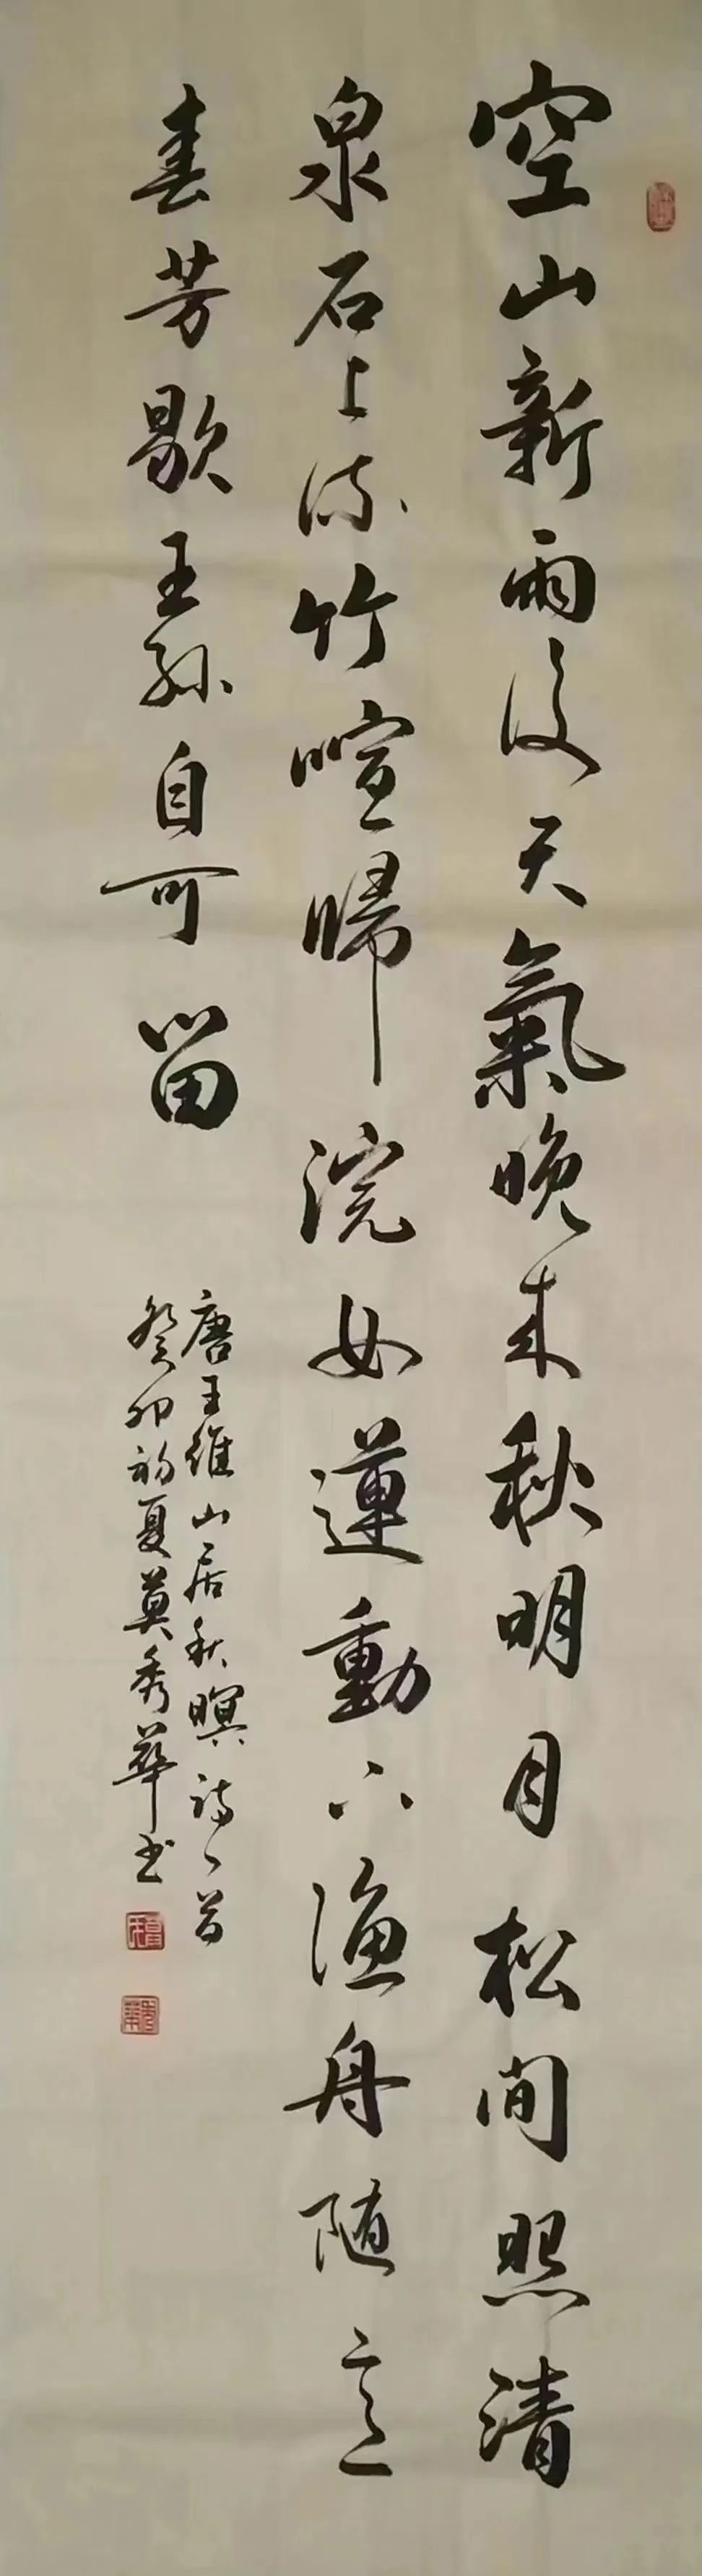 空山新雨後天氣晚来秋明月松间照清
泉石上流竹喧歸浣女蓮動下渔舟随意
春芳歇王孫自可留
唐王維山居秋暝詩一首
癸卯初夏莫秀華书